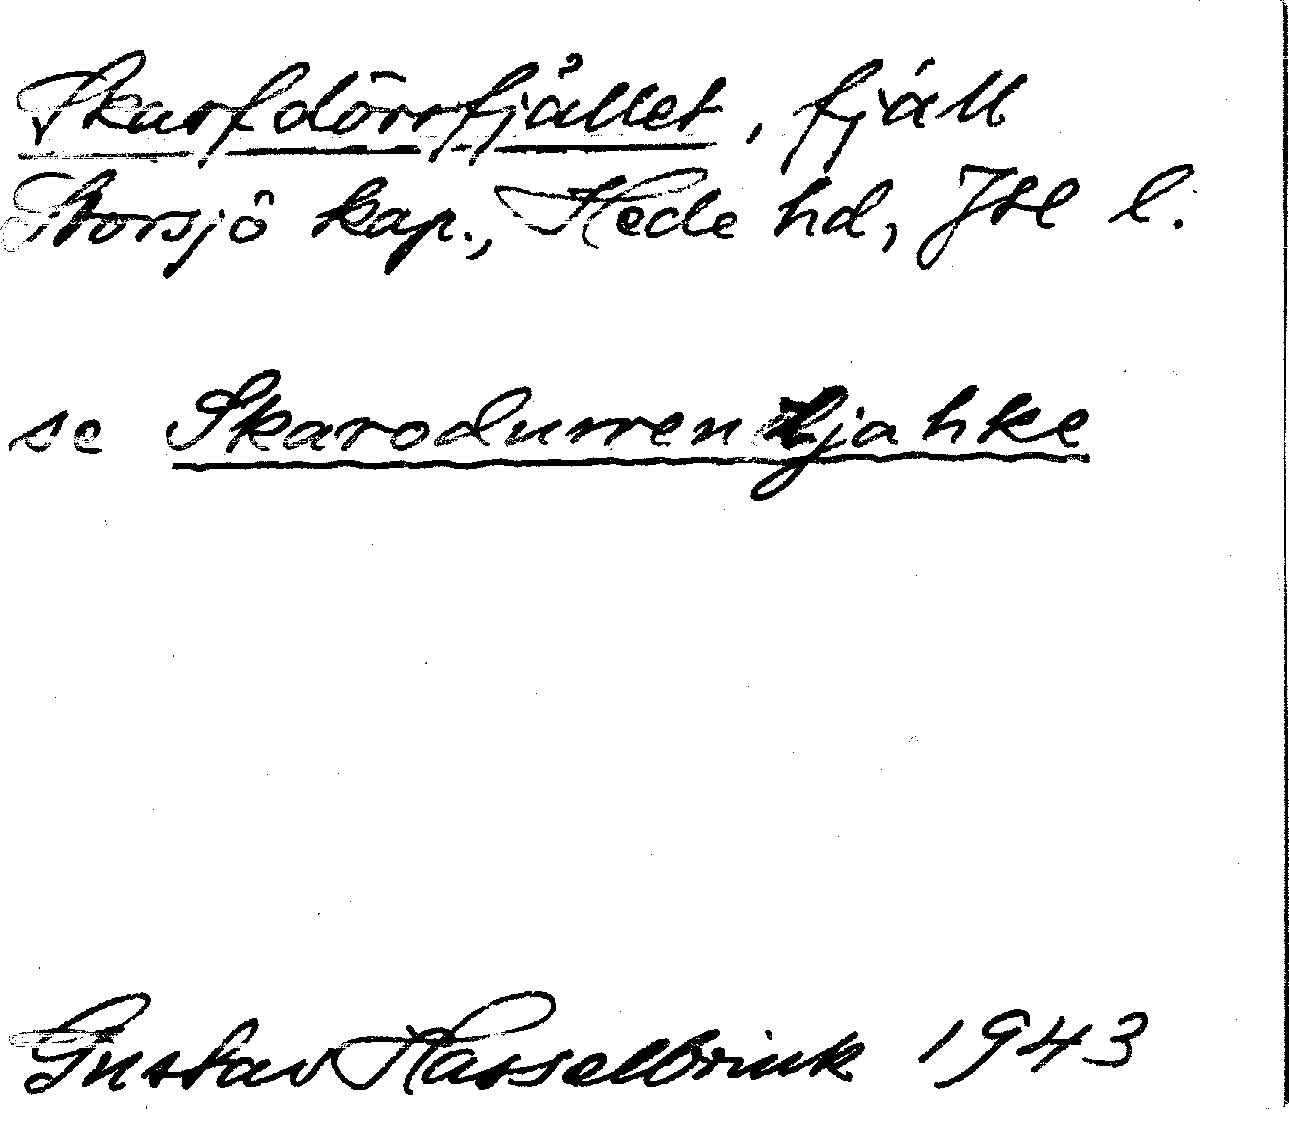 Skarfdörrfjället, fjäll
Storsjö kap., Hede hd, Jtl l.
se Skarodurrentjahke
Gustav Hasselbrink 1943